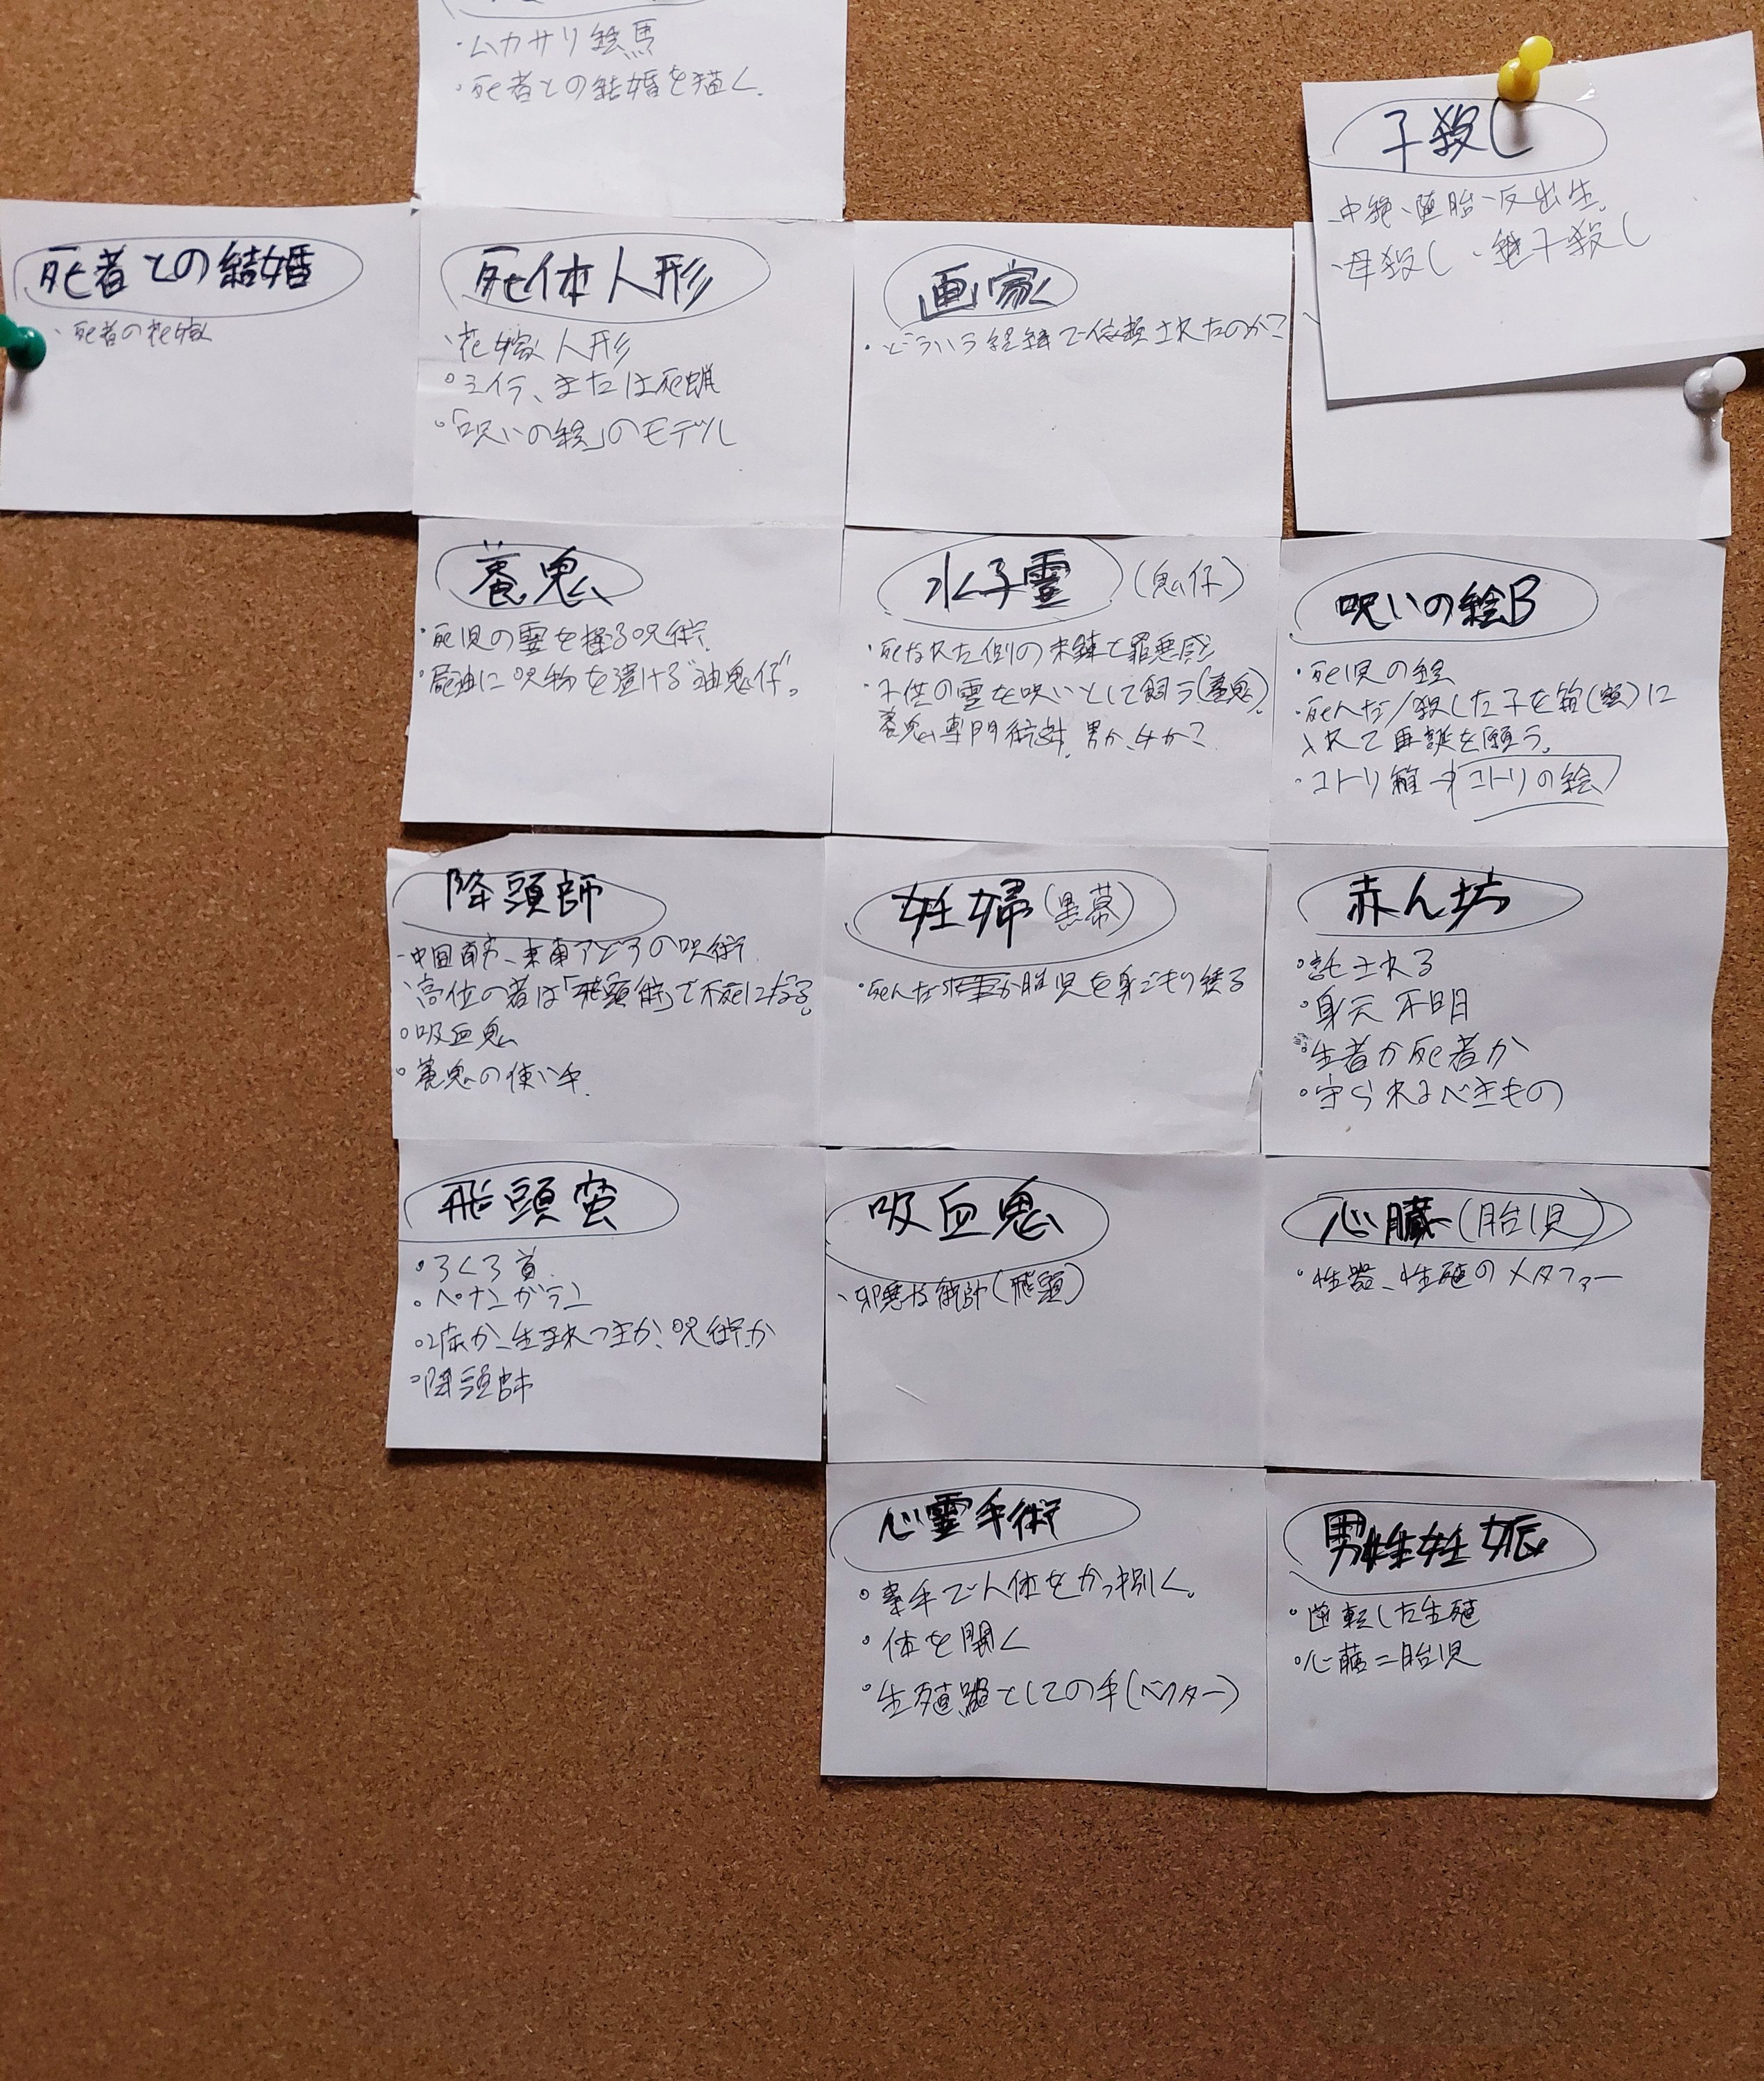 ・ムカサリ絵馬
・死者との結婚を描く。
子殺し
・中絶、堕胎、反出生。
・母殺し・継子殺し
死者との結婚
・死者の花嫁
死体人形
・花嫁人形
・ミイラ、または死蝋
・「呪いの絵」のモデル
画家
・どういう経緯で依頼されたのか?
養鬼
・死児の霊を操る呪術。
・屍油に呪物を漬ける"油鬼仔"。
水子霊(鬼仔)
・死なれた側の未錬と罪悪感
・子供の霊を呪いとして飼う(養鬼)
養鬼専門術師。男か、女か?
呪いの絵B
・死児の絵
・死んだ/殺した子を箱()に
入れて再誕を願う。
・コトリ箱→コトリの絵
降頭師
・中国南方、東南アジアの呪術
・高位の者は「飛頭術」で不死になる。
・吸血鬼
・養鬼の使い手。
妊婦(黒幕)
・死んだ 胎児を身ごもり続る
赤ん坊
・託される
・身元不明
・生者か死者か
・守られるべきもの
飛頭蛮
・ろくろ首
・ペナンガラン
・病か、生まれつきか、呪術か
・降頭師
吸血鬼
・邪悪な術師(飛頭)
心臓(胎児)
・性器、生殖のメタファー
心霊手術
・素手で人体をかっ捌く。
・体を開く
・生殖器としての手(ベクター)
男性妊娠
・逆転した生殖
・心臓=胎児